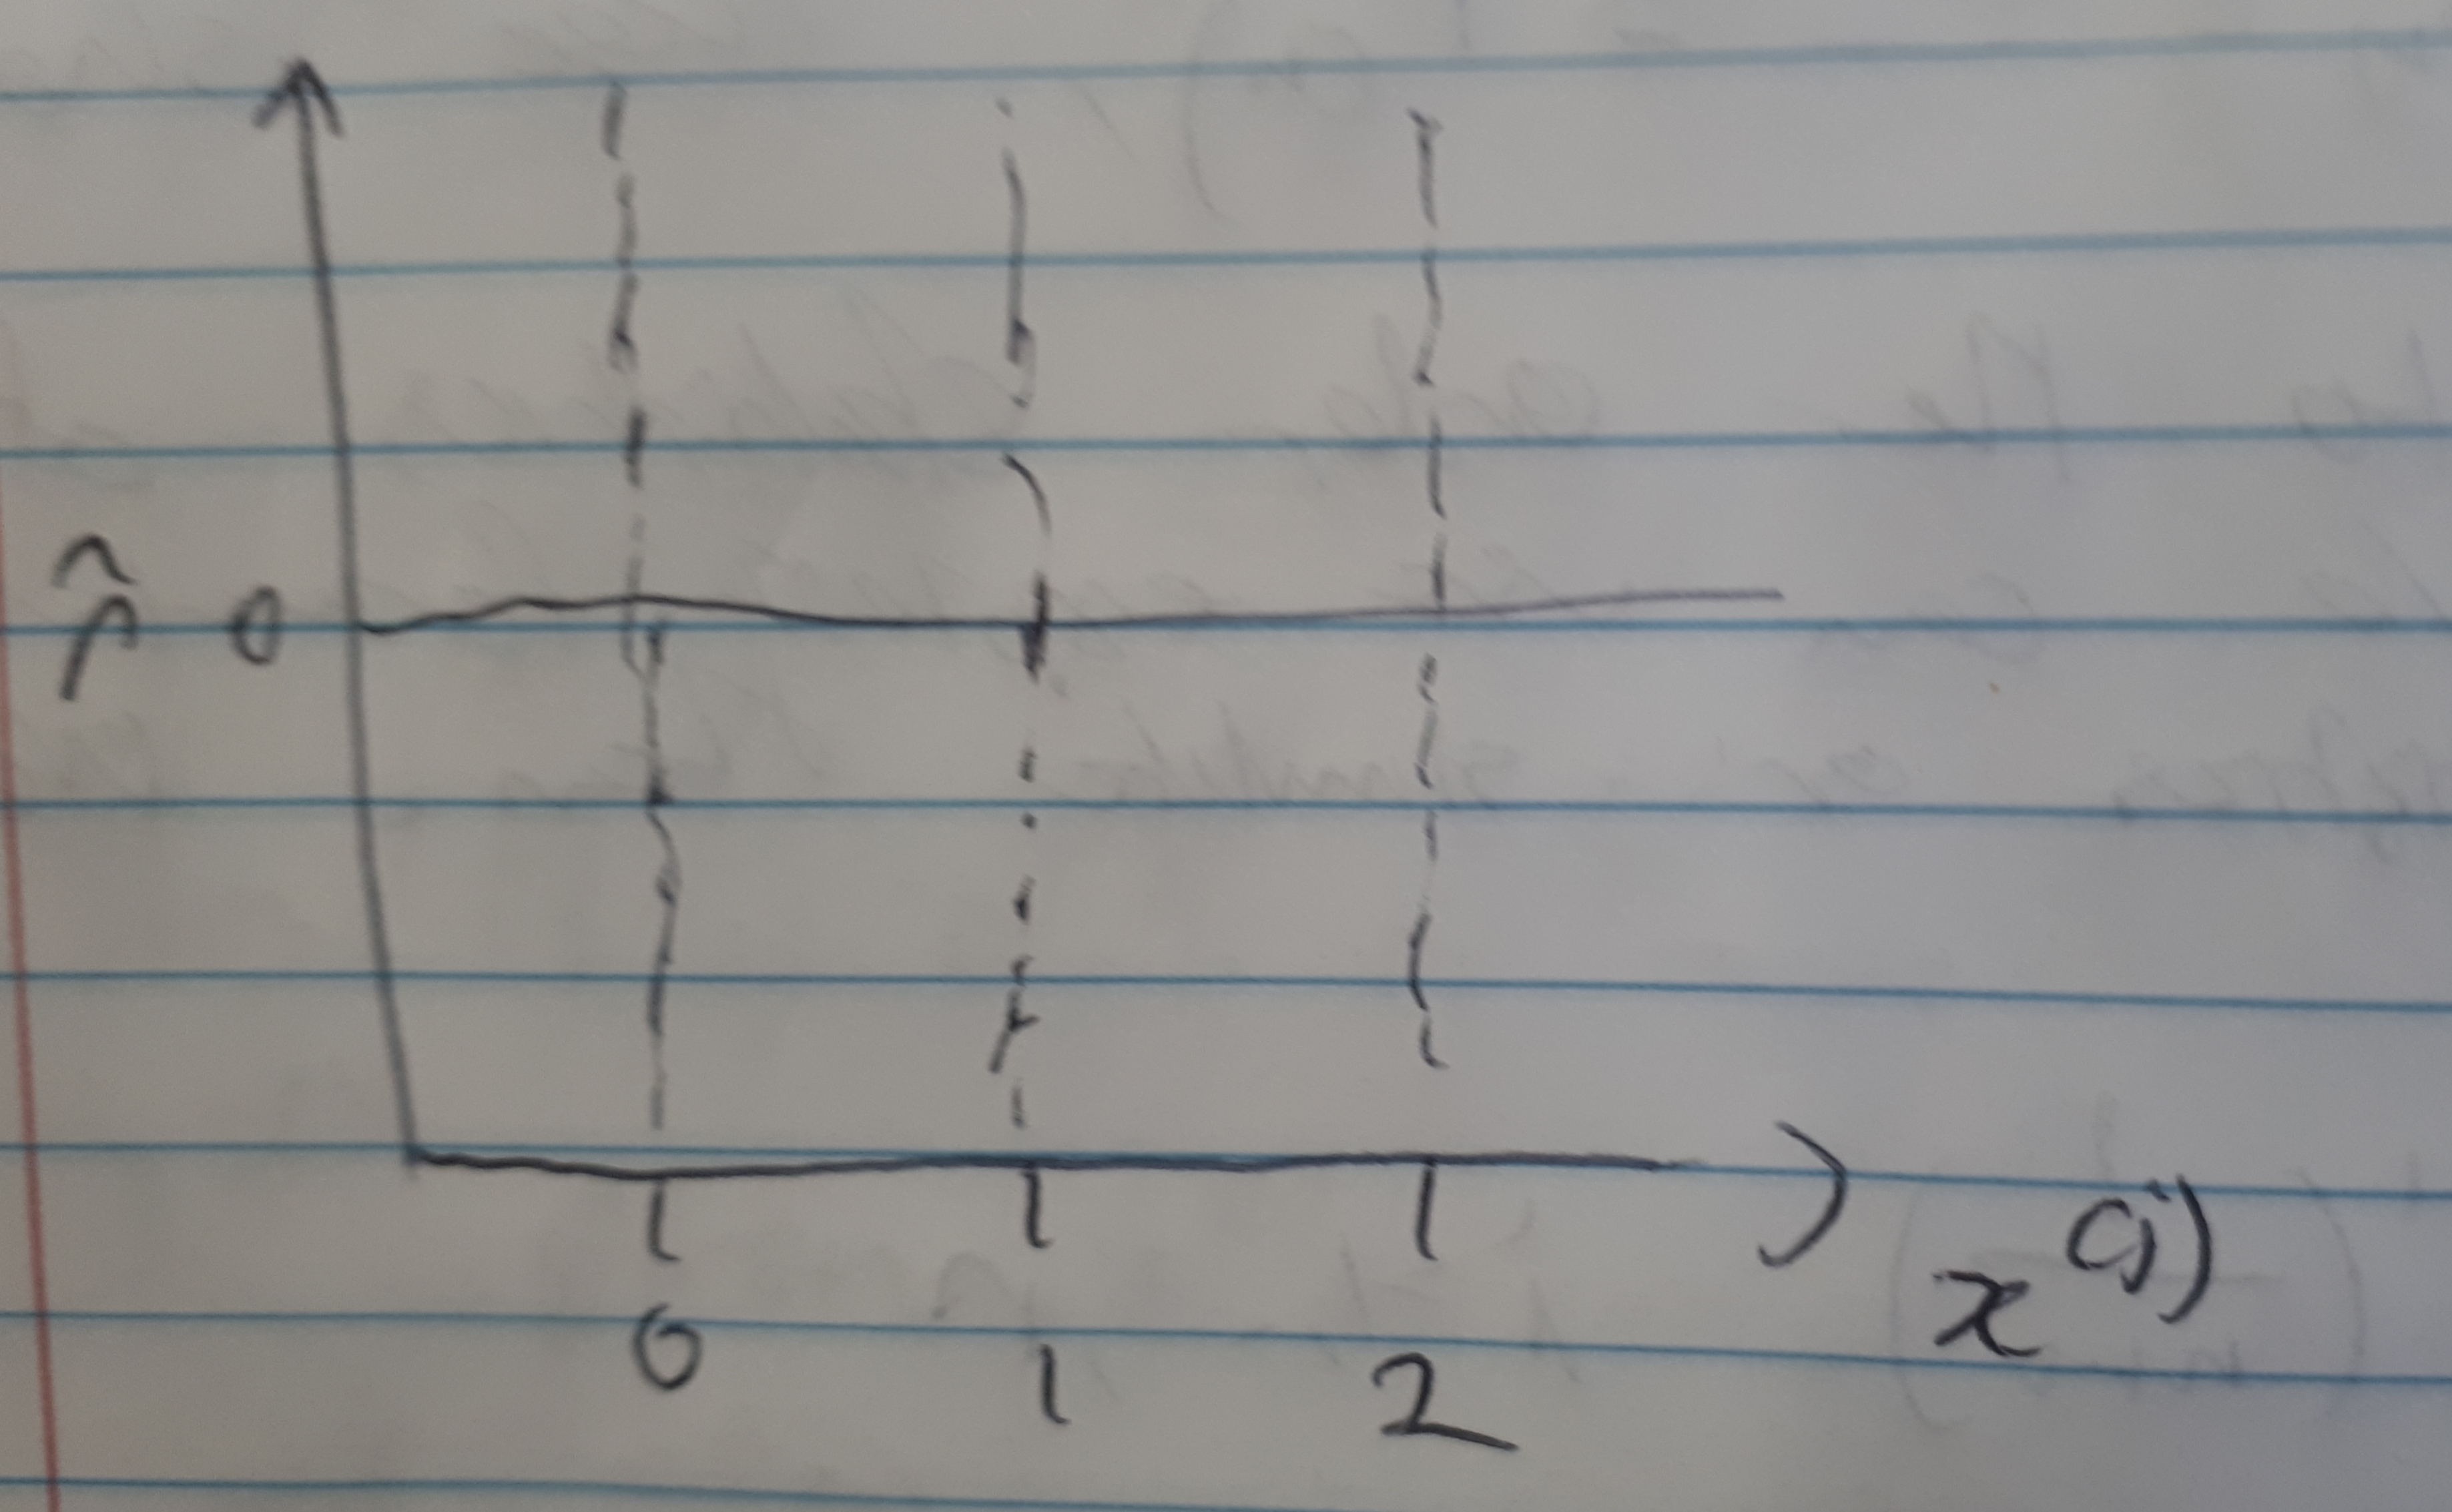 r̂ 0
0 1 2
x^(j)